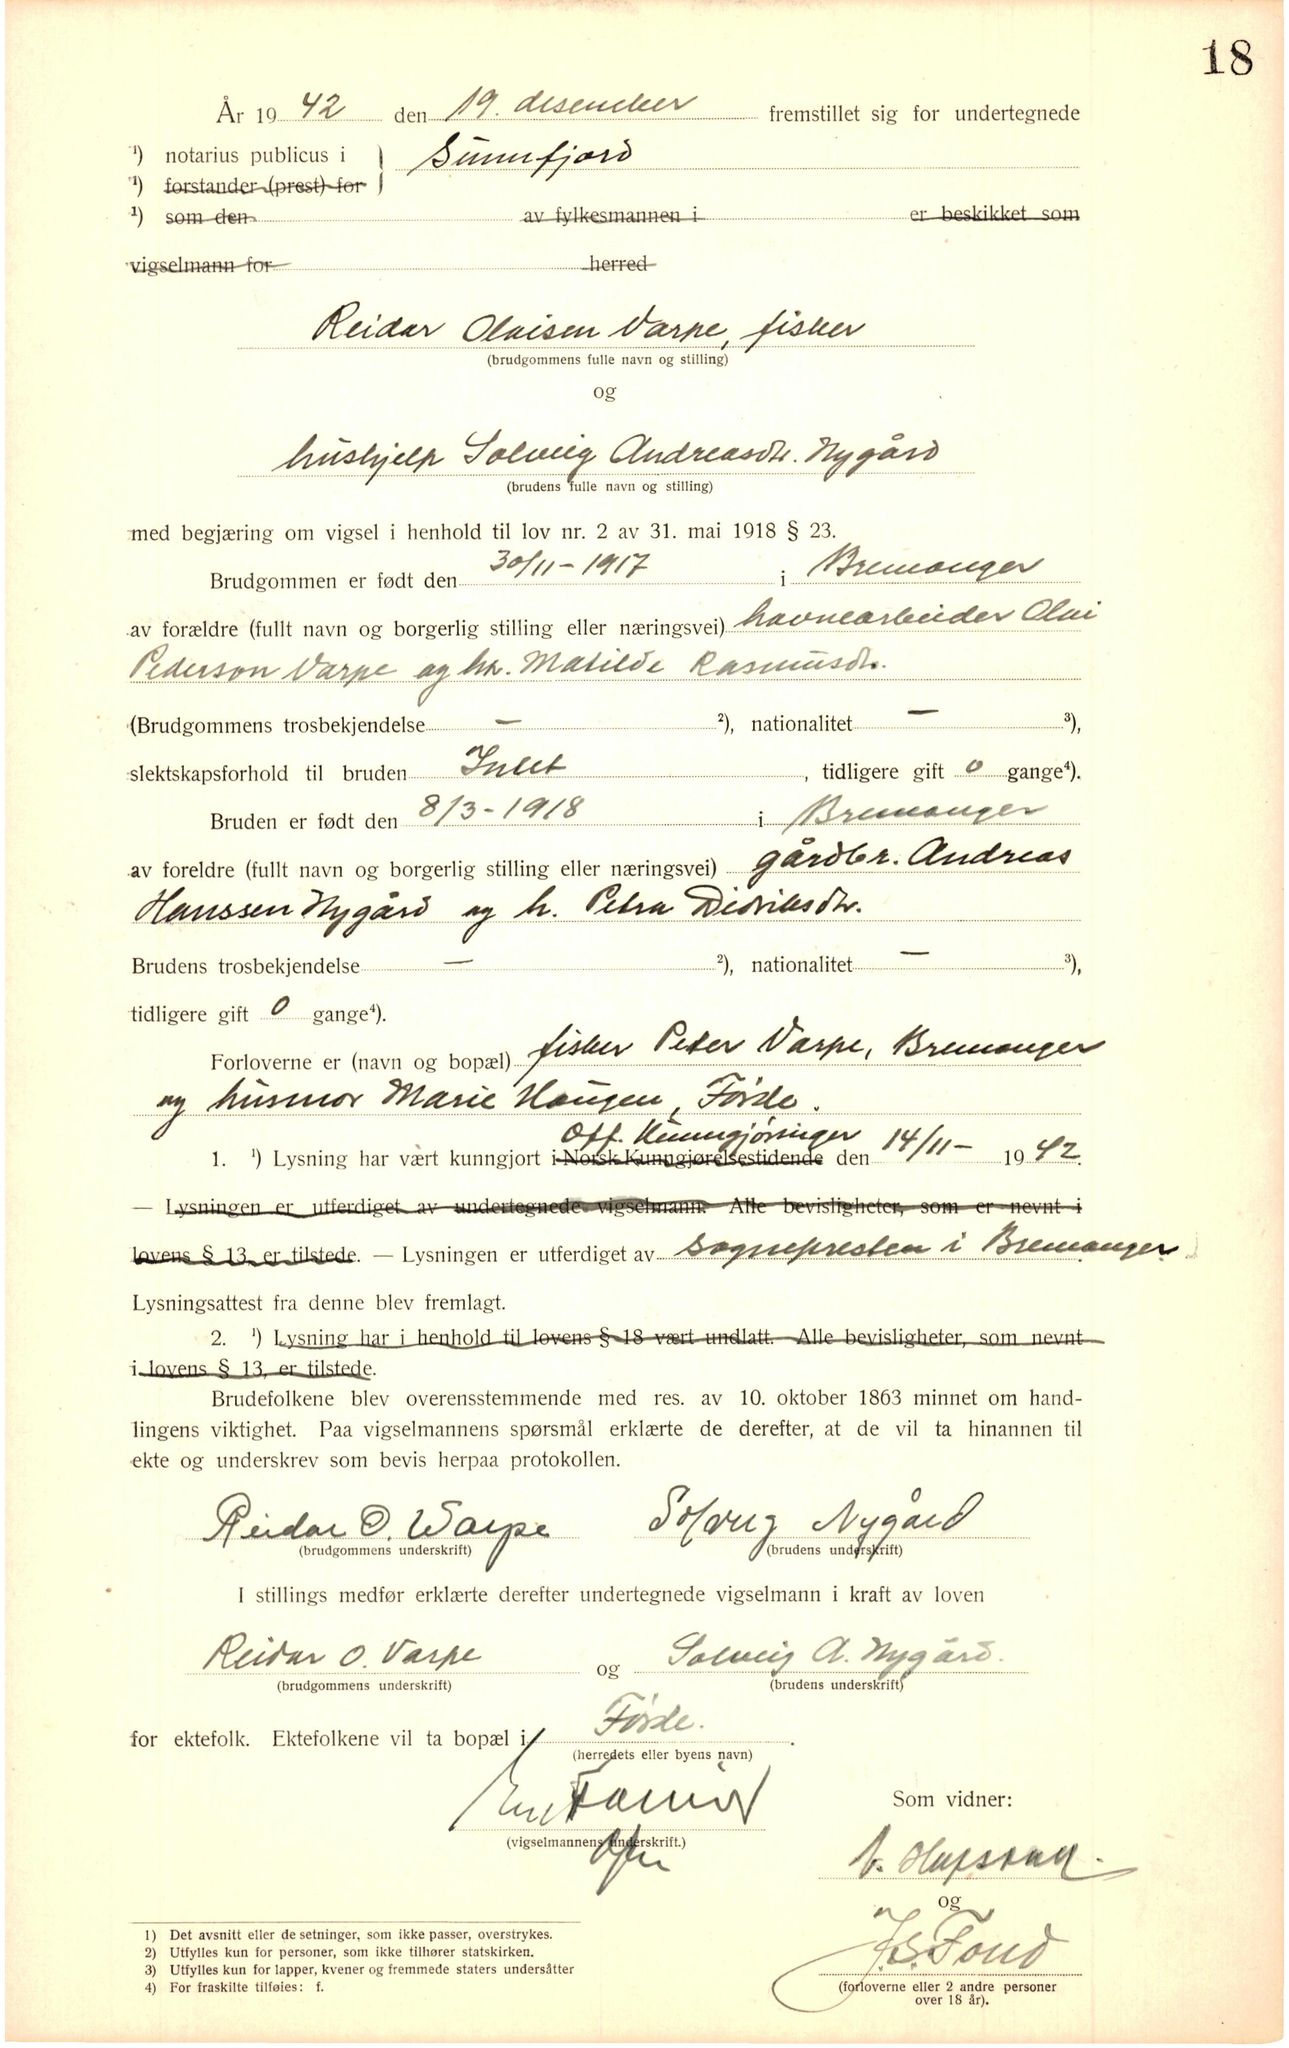 18
År 19 42 den 19. desember fremstillet sig for undertegnede
1) notarius publicus i } Sunnfjord
1) forstander (prest) for
1) som den av fylkesmannen i er beskikket som
vigselmann for herred
Reidar Olaisen Varpe, fisker
(brudgommens fulle navn og stilling)
og
hushjelp Solveig Andreasdtr. Nygård
(brudens fulle navn og stilling)
med begjæring om vigsel i henhold til lov nr. 2 av 31. mai 1918 § 23.
Brudgommen er født den 30/11-1917 i Bremanger
av forældre (fullt navn og borgerlig stilling eller næringsvei) havnearbeider Olai
Pederson Varpe og hr. Matilde Rasmusdtr.
(Brudgommens trosbekjendelse — 2), nationalitet — 3),
slektskapsforhold til bruden Intet, tidligere gift 0 gange4).
Bruden er født den 8/3-1918 i Bremanger
av foreldre (fullt navn og borgerlig stilling eller næringsvei) gårdbr. Andreas
Hanssen Nygård og h. Petra Didriksdtr.
Brudens trosbekjendelse — 2), nationalitet — 3),
tidligere gift 0 gange4).
Forloverne er (navn og bopæl) fisker Peter Varpe, Bremanger
og husmor Marie Haugen, Førde.
Off. Kunngjøringer
1. 1) Lysning har vært kunngjort i Norsk Kunngjørelsestidende den 14/11- 19 42.
— Lysningen er utferdiget av undertegnede vigselmann. Alle bevisligheter, som er nevnt i
lovens § 13, er tilstede. — Lysningen er utferdiget av sognepresten i Bremanger.
Lysningsattest fra denne blev fremlagt.
2. 1) Lysning har i henhold til lovens § 18 vært undlatt. Alle bevisligheter, som nevnt
i lovens § 13, er tilstede.
Brudefolkene blev overensstemmende med res. av 10. oktober 1863 minnet om hand-
lingens viktighet. Paa vigselmannens spørsmål erklærte de derefter, at de vil ta hinannen til
ekte og underskrev som bevis herpaa protokollen.
Reidar O. Warpe Solveig Nygård
(brudgommens underskrift) (brudens underskrift)
I stillings medfør erklærte derefter undertegnede vigselmann i kraft av loven
Reidar O. Varpe og Solveig A. Nygård.
(brudgommens underskrift) (brudens underskrift)
for ektefolk. Ektefolkene vil ta bopæl i Førde.
(herredets eller byens navn)
Som vidner:
(vigselmannens underskrift.)
og
J.S. Fond
(forloverne eller 2 andre personer
over 18 år).
1) Det avsnitt eller de setninger, som ikke passer, overstrykes.
2) Utfylles kun for personer, som ikke tilhører statskirken.
3) Utfylles kun for lapper, kvener og fremmede staters undersåtter
4) For fraskilte tilføies: f.